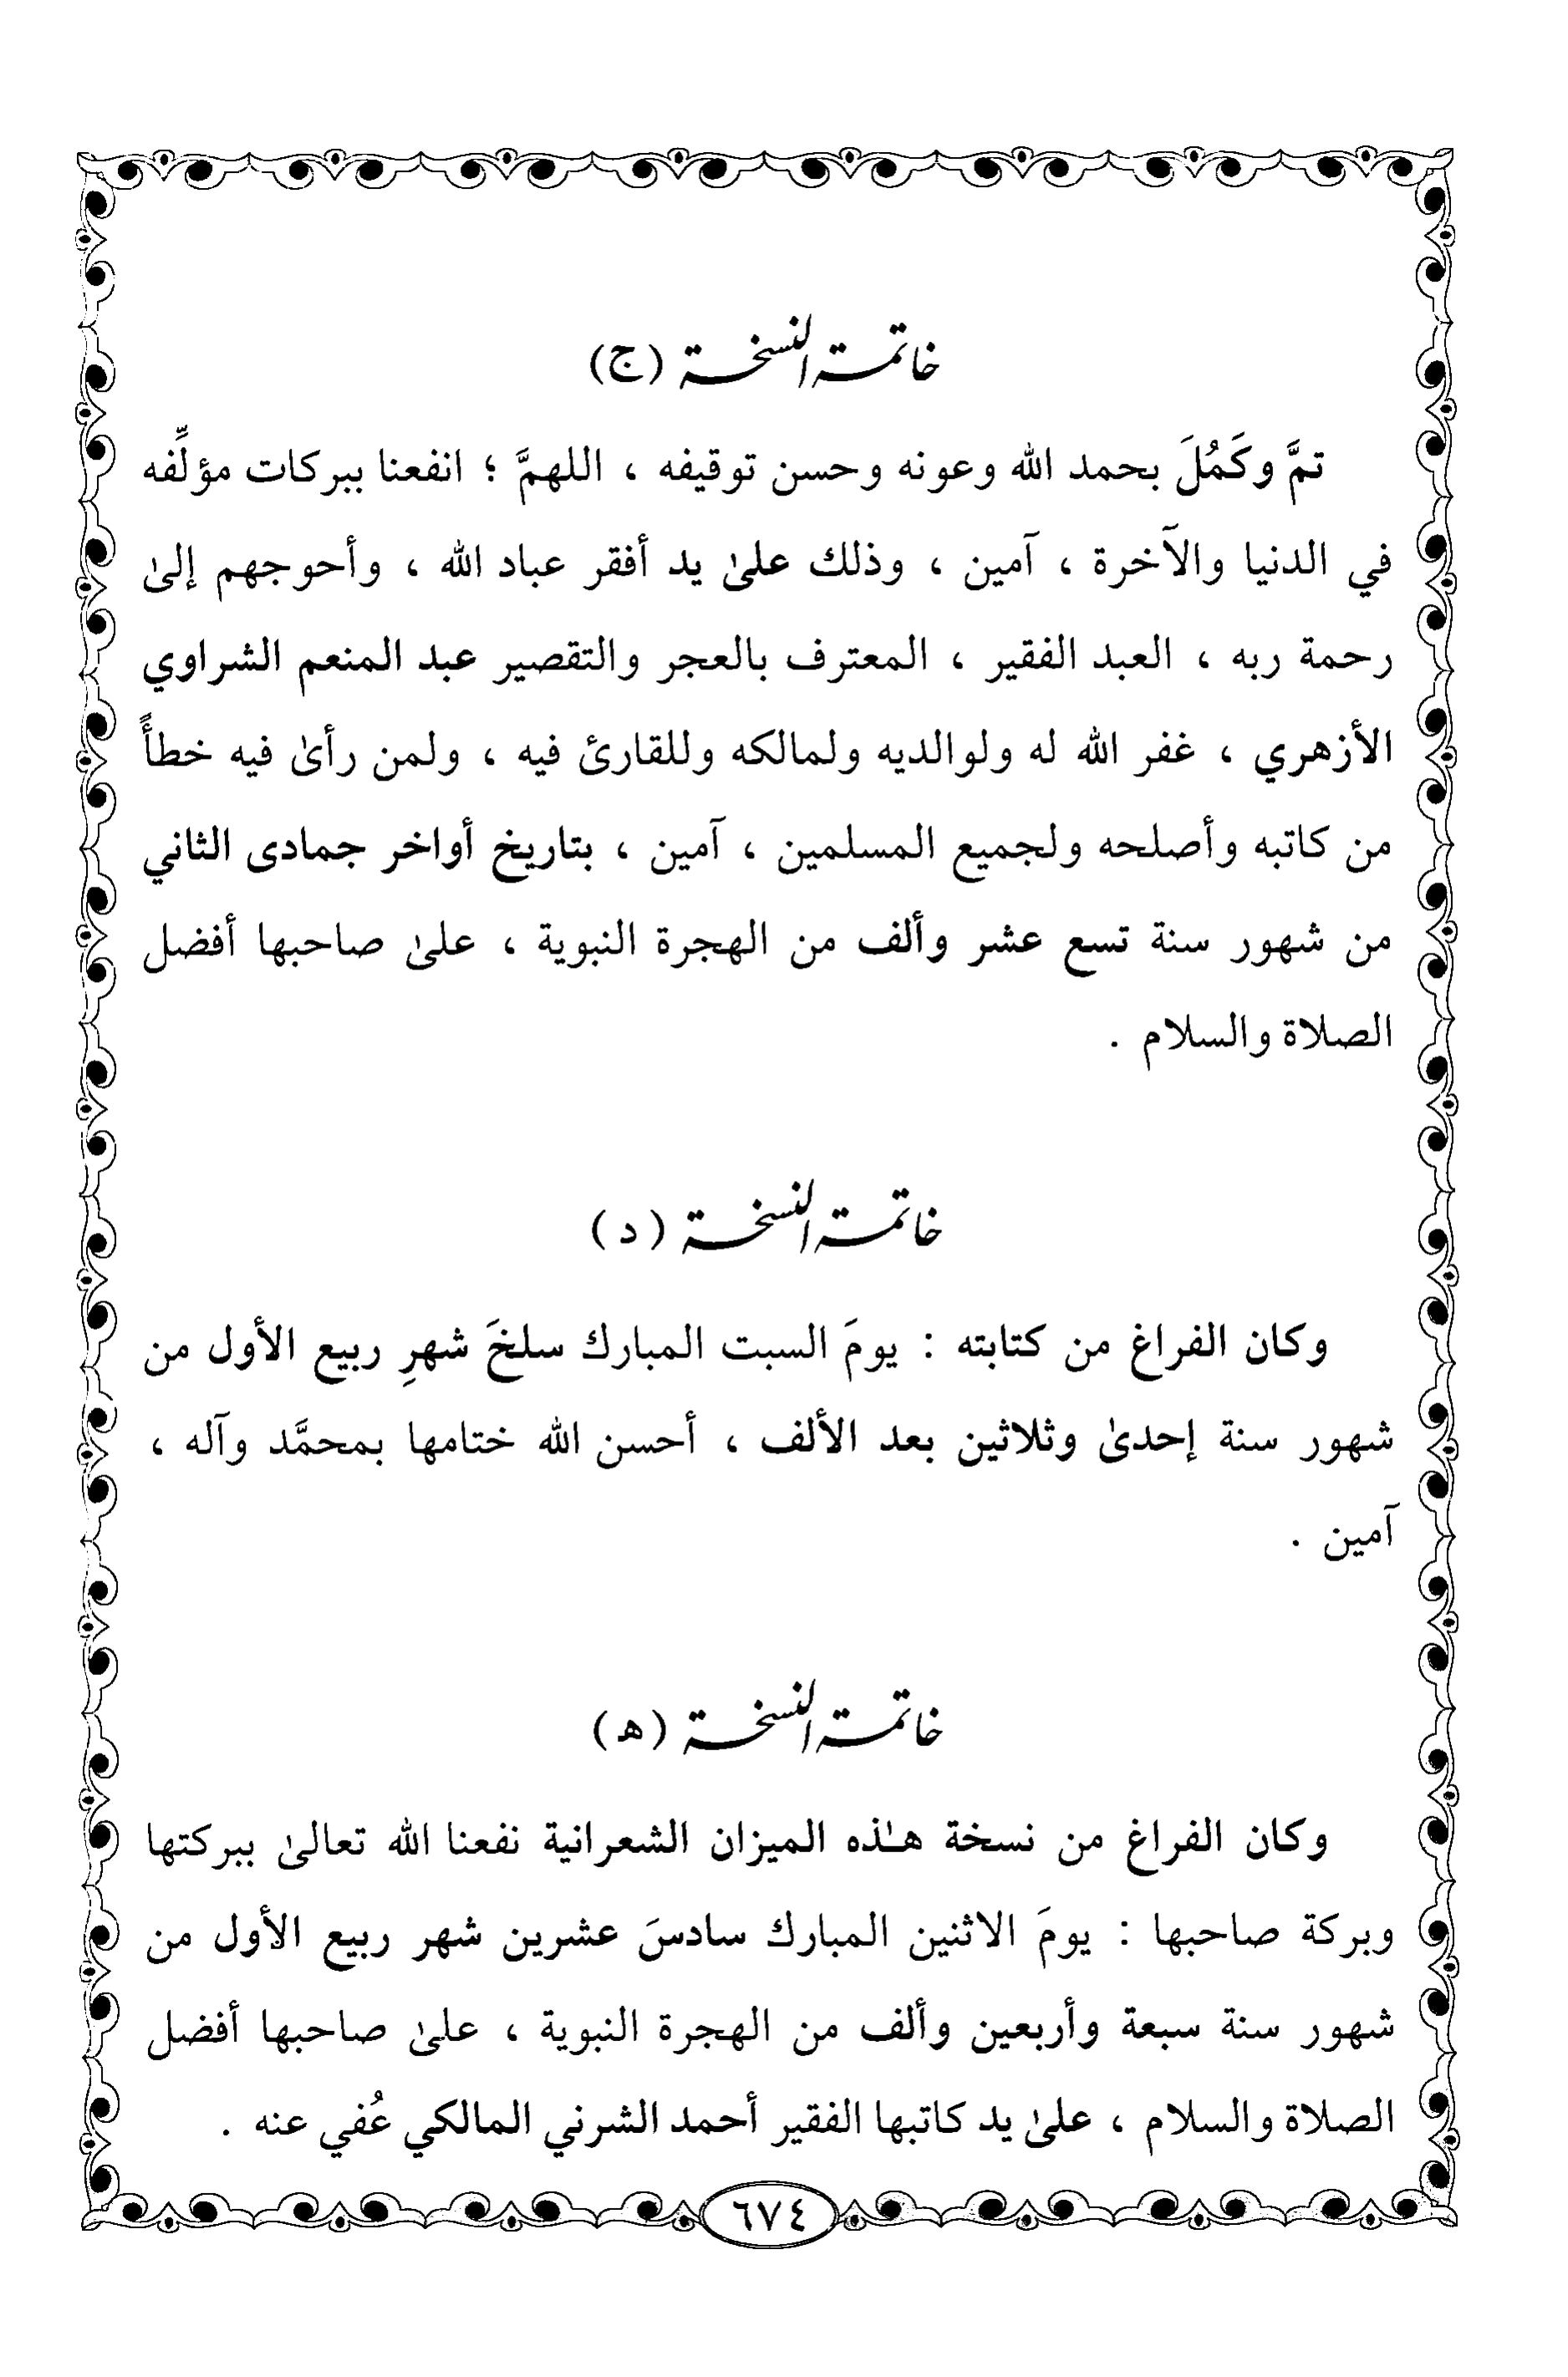 خاتمة النسخة (ج)
تمَّ وكَمُلَ بحمد الله وعونه وحسن توقيفه ، اللهمَّ ؛ انفعنا ببركات مؤلِّفه
في الدنيا والآخرة ، آمين ، وذلك علىٰ يد أفقر عباد الله ، وأحوجهم إلىٰ
رحمة ربه ، العبد الفقير ، المعترف بالعجر والتقصير عبد المنعم الشراوي
الأزهري ، غفر الله له ولوالديه ولمالكه وللقارئ فيه ، ولمن رأىٰ فيه خطأً
من كاتبه وأصلحه ولجميع المسلمين ، آمين ، بتاريخ أواخر جمادى الثاني
من شهور سنة تسع عشر وألف من الهجرة النبوية ، علىٰ صاحبها أفضل
الصلاة والسلام .
خاتمة النسخة (د)
وكان الفراغ من كتابته : يومَ السبت المبارك سلخَ شهرِ ربيع الأول من
شهور سنة إحدىٰ وثلاثين بعد الألف ، أحسن الله ختامها بمحمَّد وآله ،
آمين .
خاتمة النسخة (هـ)
وكان الفراغ من نسخة هـٰذه الميزان الشعرانية نفعنا الله تعالىٰ ببركتها
وبركة صاحبها : يومَ الاثنين المبارك سادسَ عشرين شهر ربيع الأول من
شهور سنة سبعة وأربعين وألف من الهجرة النبوية ، علىٰ صاحبها أفضل
الصلاة والسلام ، علىٰ يد كاتبها الفقير أحمد الشرني المالكي عُفي عنه .
٦٧٤